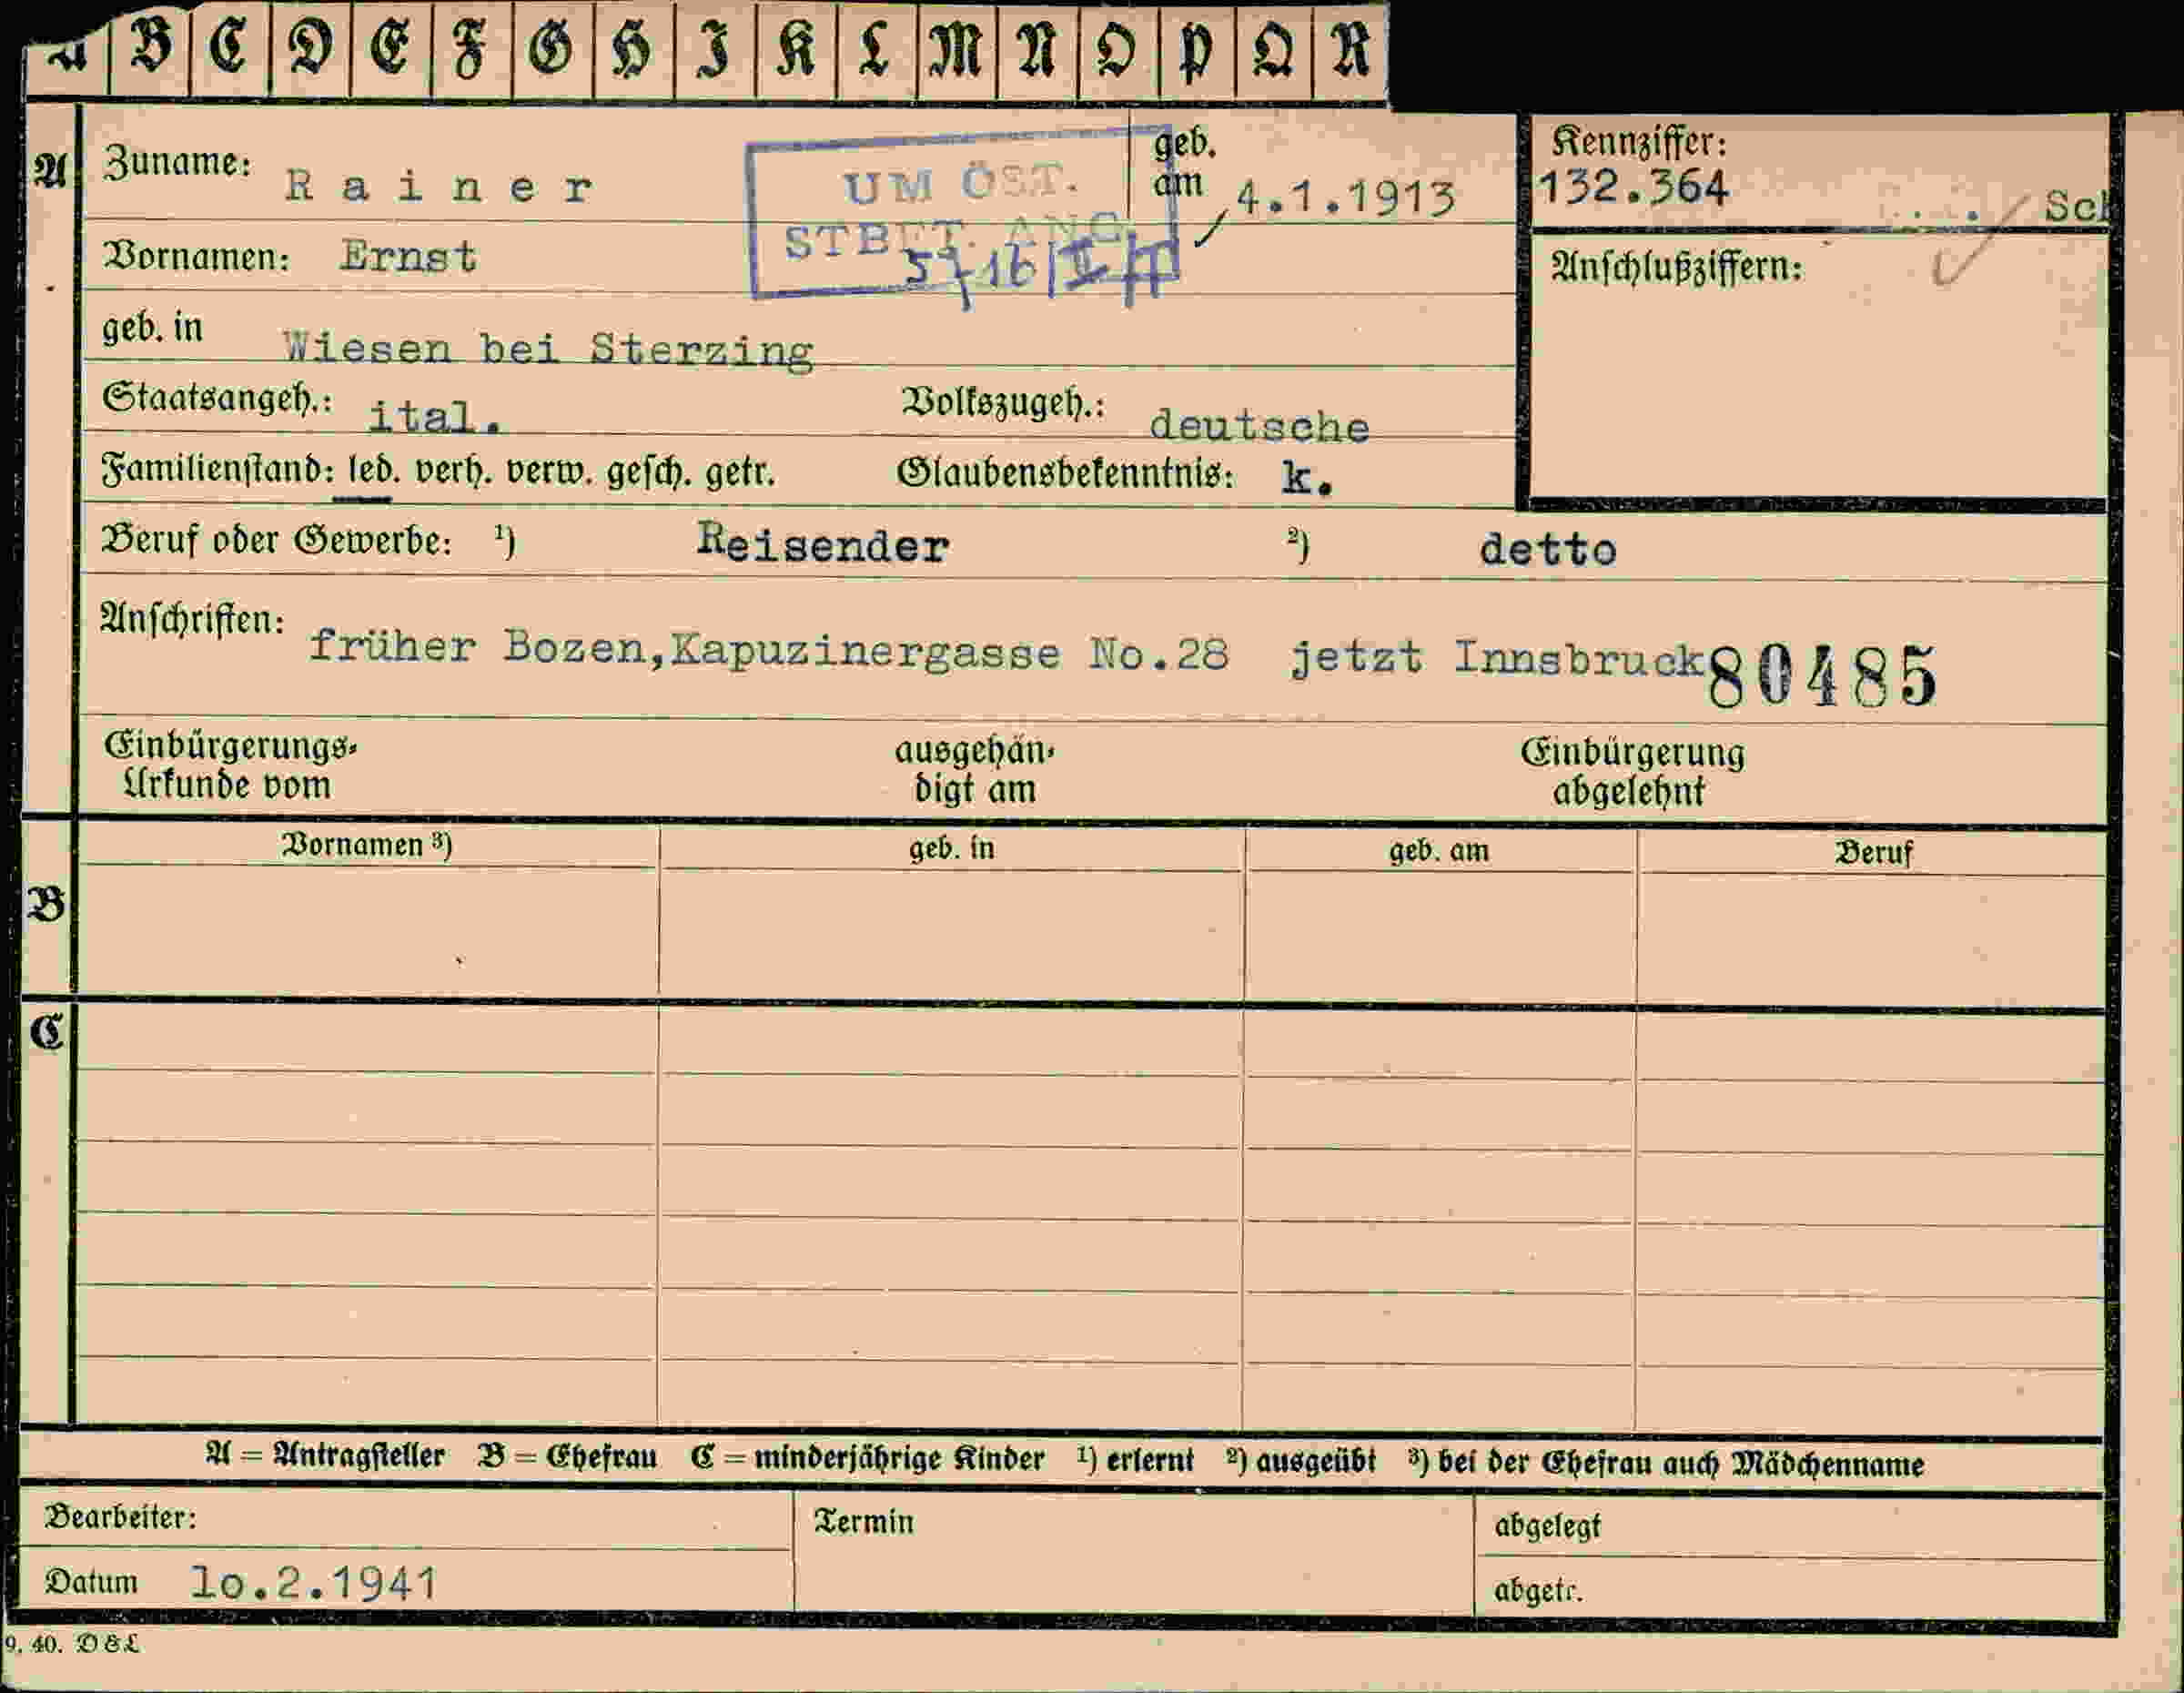 A B C D E F G H I K L M N O P Q R
A Zuname: Rainer
geb. am 4.1.1913
Kennziffer: 132.364
UM ÖST.
STBET. ANG.
Vornamen: Ernst
Anschlußziffern:
geb. in Wiesen bei Sterzing
Staatsangeh.: ital. Volkszugeh.: deutsche
Familienstand: led. verh. verw. gesch. getr. Glaubensbekenntnis: k.
Beruf oder Gewerbe: ¹) Reisender ²) detto
Anschriften: früher Bozen,Kapuzinergasse No.28 jetzt Innsbruck 80485
Einbürgerungs-Urkunde vom ausgehändigt am Einbürgerung abgelehnt
Vornamen ³) geb. in geb. am Beruf
B
C
A = Antragsteller B = Ehefrau C = minderjährige Kinder ¹) erlernt ²) ausgeübt ³) bei der Ehefrau auch Mädchenname
Bearbeiter: Termin abgelegt
Datum 1o.2.1941 abgetr.
9. 40. D & L